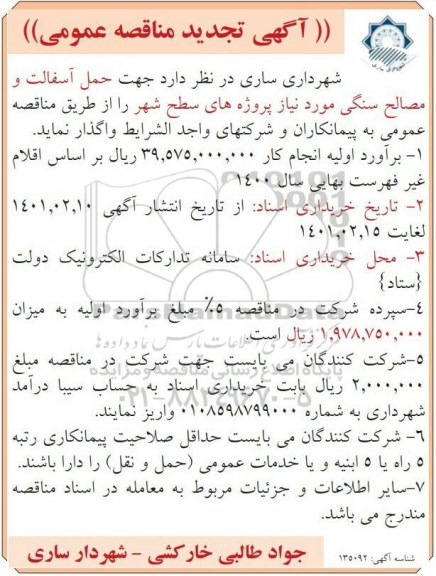 (( آگهی تجدید مناقصه عمومی))
شهرداری ساری
شهرداری ساری در نظر دارد جهت حمل آسفالت و
مصالح سنگی مورد نیاز پروژه های سطح شهر را از طریق مناقصه
عمومی به پیمانکاران و شرکتهای واجد الشرایط واگذار نماید.
۱- برآورد اولیه انجام کار ۳۹,۵۷۵,۰۰۰,۰۰۰ ریال بر اساس اقلام
غیر فهرست بهایی سال ۱۴۰۰
۲- تاریخ خریداری اسناد: از تاریخ انتشار آگهی ۱۴۰۱,۰۲,۱۰
لغایت ۱۴۰۱,۰۲,۱۵
۳- محل خریداری اسناد: سامانه تدارکات الکترونیک دولت
{ستاد}
۴-سپرده شرکت در مناقصه ۵٪ مبلغ برآورد اولیه به میزان
۱,۹۷۸,۷۵۰,۰۰۰ ریال است.
۵-شرکت کنندگان می بایست جهت شرکت در مناقصه مبلغ
۲,۰۰۰,۰۰۰ ریال بابت خریداری اسناد به حساب سیبا درآمد
شهرداری به شماره ۰۱۰۸۵۹۸۷۹۹۰۰۰ واریز نمایند.
۶- شرکت کنندگان می بایست حداقل صلاحیت پیمانکاری رتبه
۵ راه یا ۵ ابنیه و یا خدمات عمومی (حمل و نقل) را دارا باشند.
۷-سایر اطلاعات و جزئیات مربوط به معامله در اسناد مناقصه
مندرج می باشد.
شناسه آگهی: ۱۳۵۰۹۲
جواد طالبی خارکشی - شهردار ساری